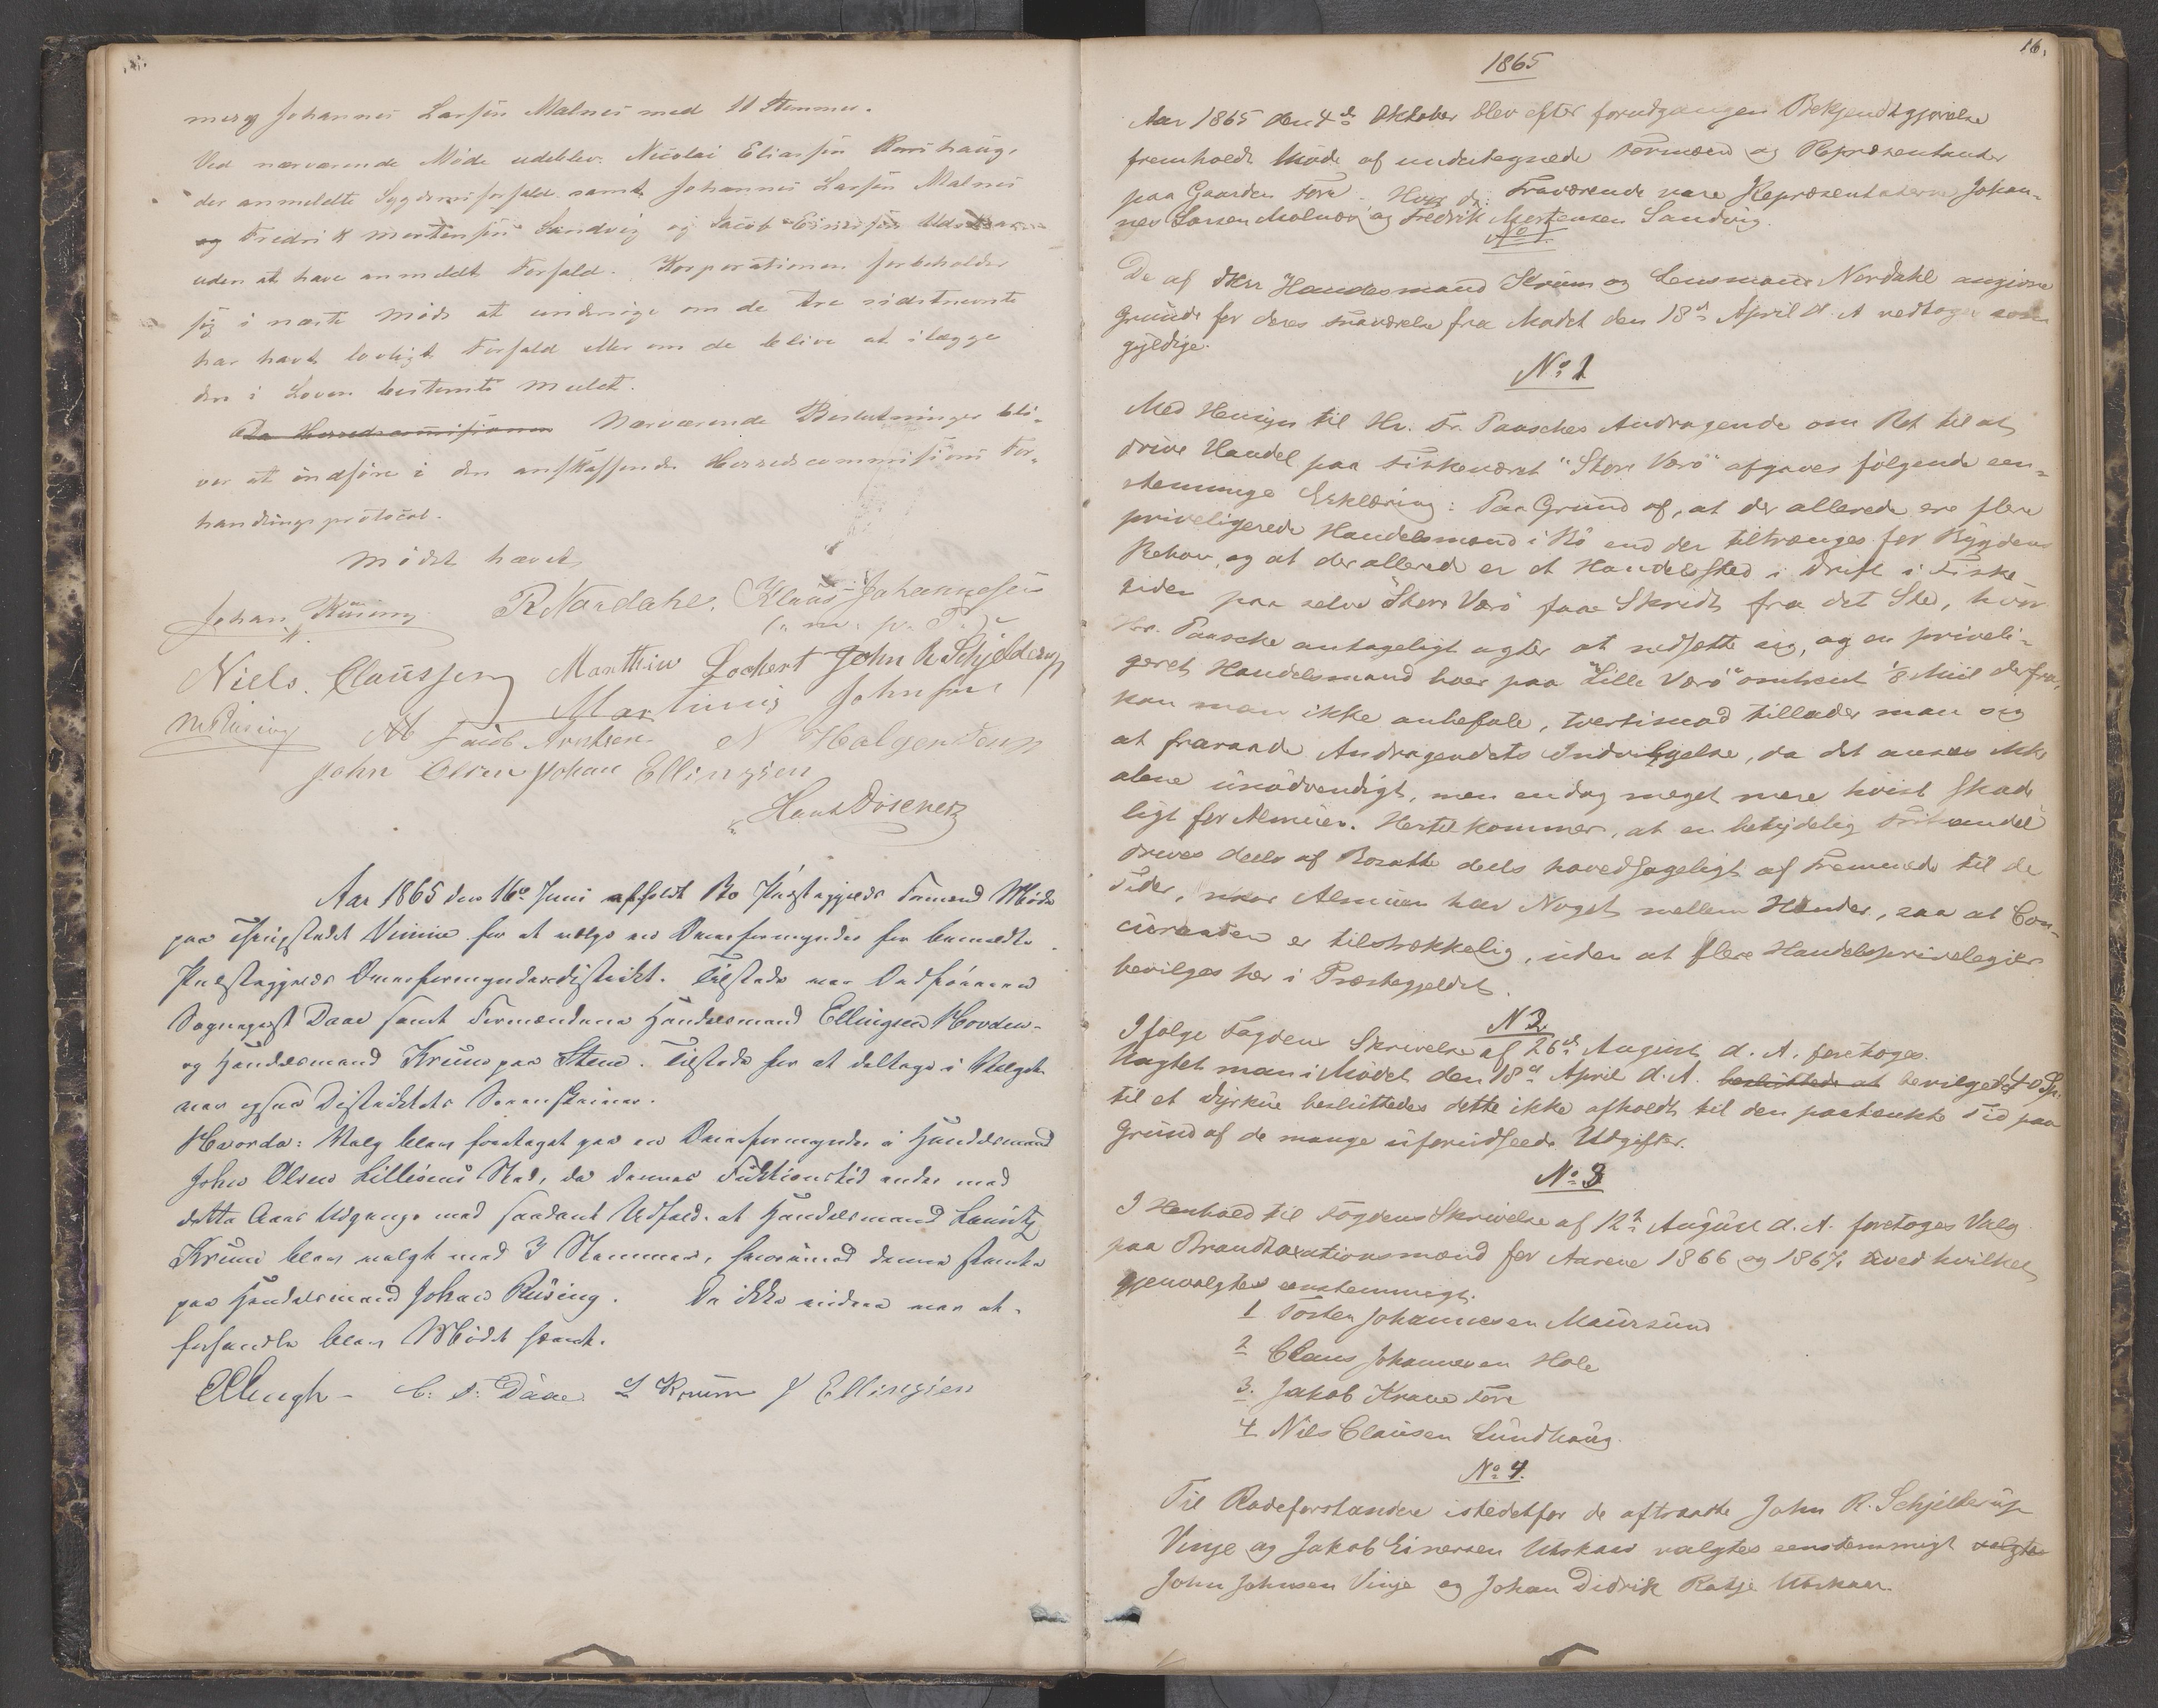 mery Johannes Larsen Malnes med 11 Stemmer.
Ved nærværende Møde udeblev Nicolai Eliassen Ramshaug,
der anmeldte Sygdomsforfald samt Johannes Larsen Malnes
og Fredrik Mortensen Sandvig og Jacob Einersen
uden at have anmeldt Forfald. Korporationen forbeholder
sig i næste Møde at undersøge om de tre sidstnevnte
har havt lovligt Forfald eller om de blive at ilægge
den i Loven bestemte Mulct.
Da Herredscommissionen Nærværende Beslutninger bli-
ver at indføre i den anskaffende Herredscommissions For-
handlingsprotocol.
Mødet hævet
Johan Rüsing R Nordahl. Klaus Johannesen
(m. p. P.)
Niels. Claussen Marthin Lockert John R Schjelderup
Martinus Johnsen
M Rüsing Jacob Arntsen N Helgensen
John Olsen Johan Ellingsen
Hans
Aar 1865 den 16de Juni afholdt Bø Præstegjelds Formænd Møde
paa Thingstedet Vinje for at vælge en Overformynder for bemeldte
Præstegjelds Overformynderdistrikt. Tilstede var Ordføreren
Sogneprest Daae samt Formændene Handelsmand Ellingsen Hovden
og Handelsmand Krum paa Steen. Tilstede for at deltage i Valget
var ogsaa Distriktets Sorenskriver.
Hvorda: Valg blev foretaget paa en Overformynder i Handelsmand
John Olsens Sted, da dennes Funktionstid endes med
dette Aars Udgang, med saadant Udfald at Handelsmand Lauritz
Krum blev valgt med 3 Stemmer, hvorimod denne stemte
paa Handelsmand Johan Rüsing. Da ikke videre var at
forhandle blev Mødet hævet.
C: F: Daae. L Krum J Ellingsen
16.
1865
Aar 1865 den 4de Oktober blev efter forudgangen Bekjendtgjørelse
fremholdt Møde af undertegnede Formænd og Repræsentanter
paa Gaarden Føre. Hvor da: Fraværende vare Repræsentanterne Johan-
nes Larsen Malnæs og Fredrik Mortensen Sandvig.
De af Hrr Handesmand Krum og Lensmand Nordahl angivne
Grunde for deres Fraværelse fra Mødet den 18de April d. A vedtoges som
gyldige.
No. 1
Med Hensyn til Hr. Fr. Paasches Andragende om Ret til at
drive Handel paa Fiskeværet "Store Værø" afgaves følgende een-
stemmige Erklæring: Paa Grund af, at der allerede ere flere
priveligerede Handelsmænd i Bø end der tiltrænges for Bygdens
Behov, og at der allerede er et Handelssted i Drift i Fiske-
tiden paa selve "Store Værø" faa Skridt fra det Sted, hvor
Hr. Paasche antageligt agter at nedsætte sig, og en priveli-
geret Handelsmand boer paa "Lille Værø" omtrent 1/8 Miil derfra,
kan man ikke anbefale, tvertimod tillader man sig
at fraraade Andragendets Indvilgelse, da det ansees ikke
alene unødvendigt, men endog meget mere høist skade
ligt for Almuen. Hertil kommer, at en betydelig Frihandel
drives deels af Bosatte deels hovedsageligt af Fremmede til de
Tider, naar Almuen har Noget mellem Hænder, saa at Con-
curenten er tilstrækkelig, uden at flere Handelsprivelegier
bevilges her i Præstegjeldet.
N 2
Ifølge Fogdens Skrivelse af 26de August d. A. foretoges.
Uagtet man i Mødet den 18de April d. A. besluttede at bevilgedes 40 Sp.
til et Dyrskue besluttedes dette ikke afholdt til den paatænkte Tid paa
Grund af de mange uforudseede Udgifter.
No. 3
I Henhold til Fogdens Skrivelse af 12te August d. A. foretoges Valg
paa Brandtaxationsmænd for Aarene 1866 og 1867, ved hvilket
gjenvalgtes eenstemmigt.
1 Tosten Johannesen Maursund
2 Claus Johannesen Hole
3. Jakob Krane Føre
4 Nils Clausen Lundhaug.
No. 4.
Til Rodeforstandere istedetfor de aftraadte John R. Schjelderup
Vinje og Jakob Einersen Utskaar valgtes eenstemmigt valgtes
John Johnsen Vinje og Johan Didrik Ratje Utskaar.